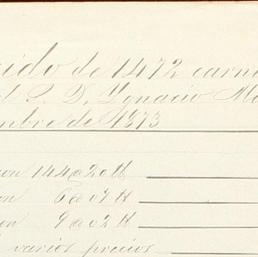 ido de 1472 carn
l S. D. Ygnacio Mo
mbre de 1873
on 144 @ 20 lb
on 6 @ 09 lb
en 9 @ 02 lb
varios precios